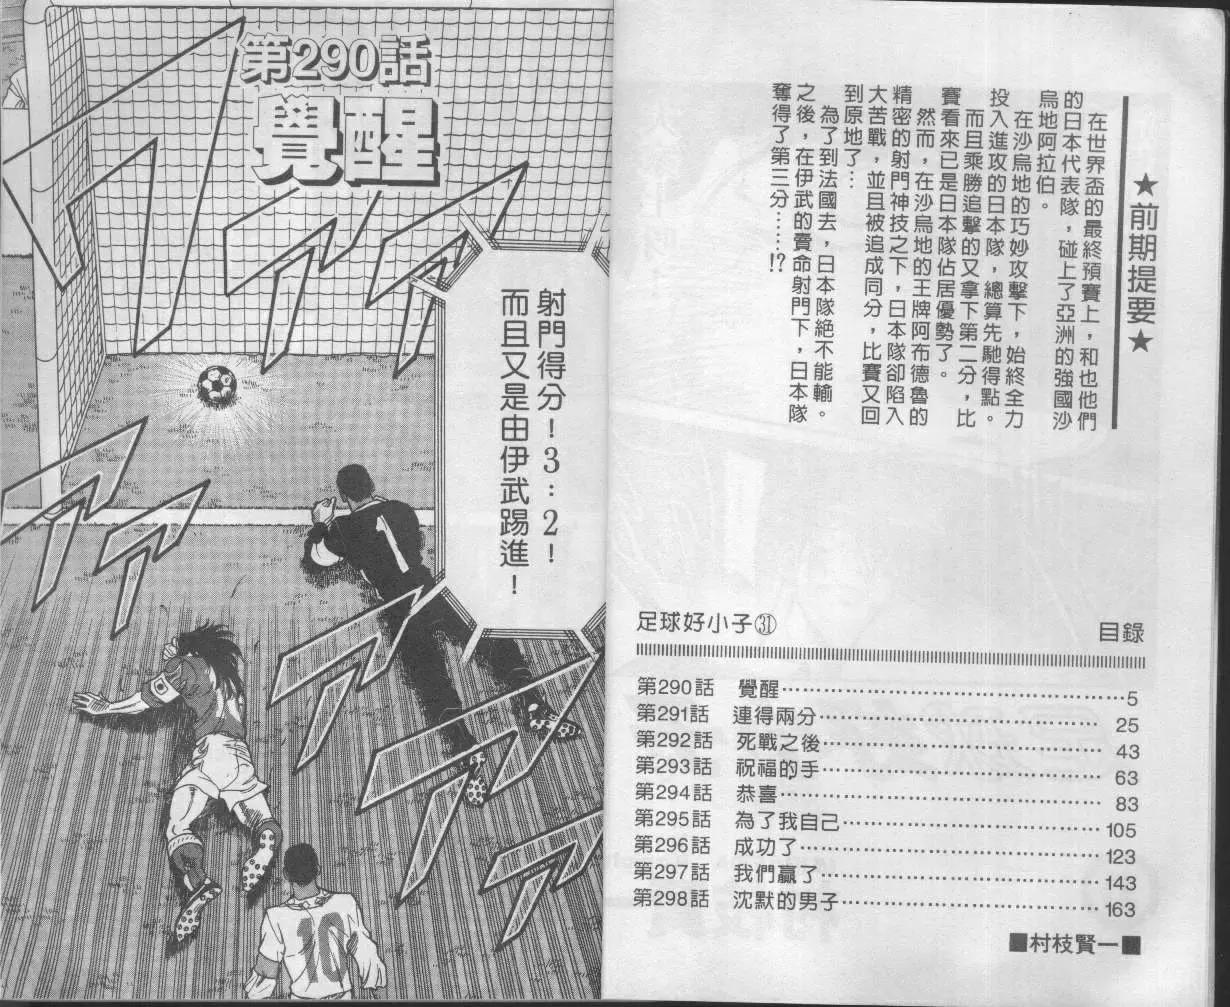 ★前期提要★
在世界盃的最終預賽上，和也他們
的日本代表隊，碰上了亞洲的強國沙
烏地阿拉伯。
在沙烏地的巧妙攻擊下，始終全力
投入進攻的日本隊，總算先馳得點。
而且乘勝追擊的又拿下第二分，比
賽看來已是日本隊佔居優勢了。
然而，在沙烏地的王牌阿布德魯的
精密的射門神技之下，日本隊卻陷入
大苦戰，並且被追成同分，比賽又回
到原地了…
為了到法國去，日本隊絕不能輸。
之後，在伊武的賣命射門下，日本隊
奪得了第三分……!?
足球好小子㉛
目錄
第290話 覺醒……………………………………5
第291話 連得兩分……………………………… 25
第292話 死戰之後……………………………… 43
第293話 祝福的手……………………………… 63
第294話 恭喜…………………………………… 83
第295話 為了我自己……………………………105
第296話 成功了…………………………………123
第297話 我們贏了………………………………143
第298話 沈默的男子……………………………163
■村枝賢一■
第290話
覺醒
射門得分！3：2！
而且又是由伊武踢進！
1
10